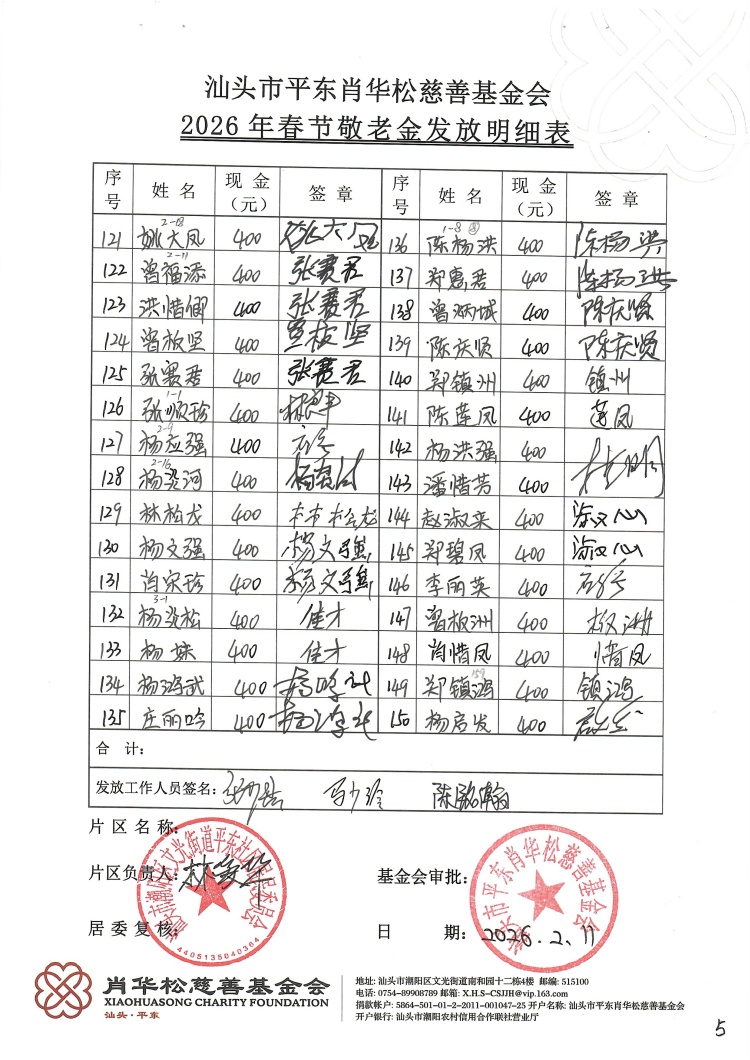 汕头市平东肖华松慈善基金会
2026年春节敬老金发放明细表
序号 姓名 现金（元） 签章 序号 姓名 现金（元） 签章
121 姚大凤 2-18 400 姚大凤 136 陈杨洪 1-8 400 陈杨洪
122 曾福添 2-11 400 张赛君 137 郑惠君 400 陈杨洪
123 洪惜卿 400 张赛君 138 曾炳城 400 陈庆贤
124 曾板坚 400 曾板坚 139 陈庆贤 400 陈庆贤
125 张赛君 400 张赛君 140 郑镇洲 400 镇州
126 张顺珍 1-1 400 141 陈莲凤 400 莲凤
127 杨应强 2-9 400 142 杨洪强 400
128 杨炎河 2-16 400 143 潘惜芳 400
129 林松龙 400 林松龙 144 赵淑栾 400 淑心
130 杨文强 400 杨文强 145 郑碧凤 400 淑心
131 肖宋珍 400 杨文强 146 李丽英 400
132 杨炎松 3-1 400 佳才 147 曾板洲 400 板洲
133 杨妹 400 佳才 148 肖惜凤 400 惜凤
134 杨鸿武 400 149 郑镇鸿 159 400 镇鸿
135 庄丽吟 400 150 杨启发 400
合 计：
发放工作人员签名： 陈铭瀚
片区名称：
片区负责人： 基金会审批：
居委复核： 日 期： 2026.2.11
4405135040364
汕头市平东肖华松慈善基金会
肖华松慈善基金会
XIAOHUASONG CHARITY FOUNDATION
汕头·平东
地址: 汕头市潮阳区文光街道南和园十二栋4楼 邮编: 515100
电话: 0754-89908789 邮箱: X.H.S-CSJJH@vip.163.com
捐款帐户: 5864-501-01-2-2011-001047-25 开户名称: 汕头市平东肖华松慈善基金会
开户银行: 汕头市潮阳农村信用合作联社营业厅
5